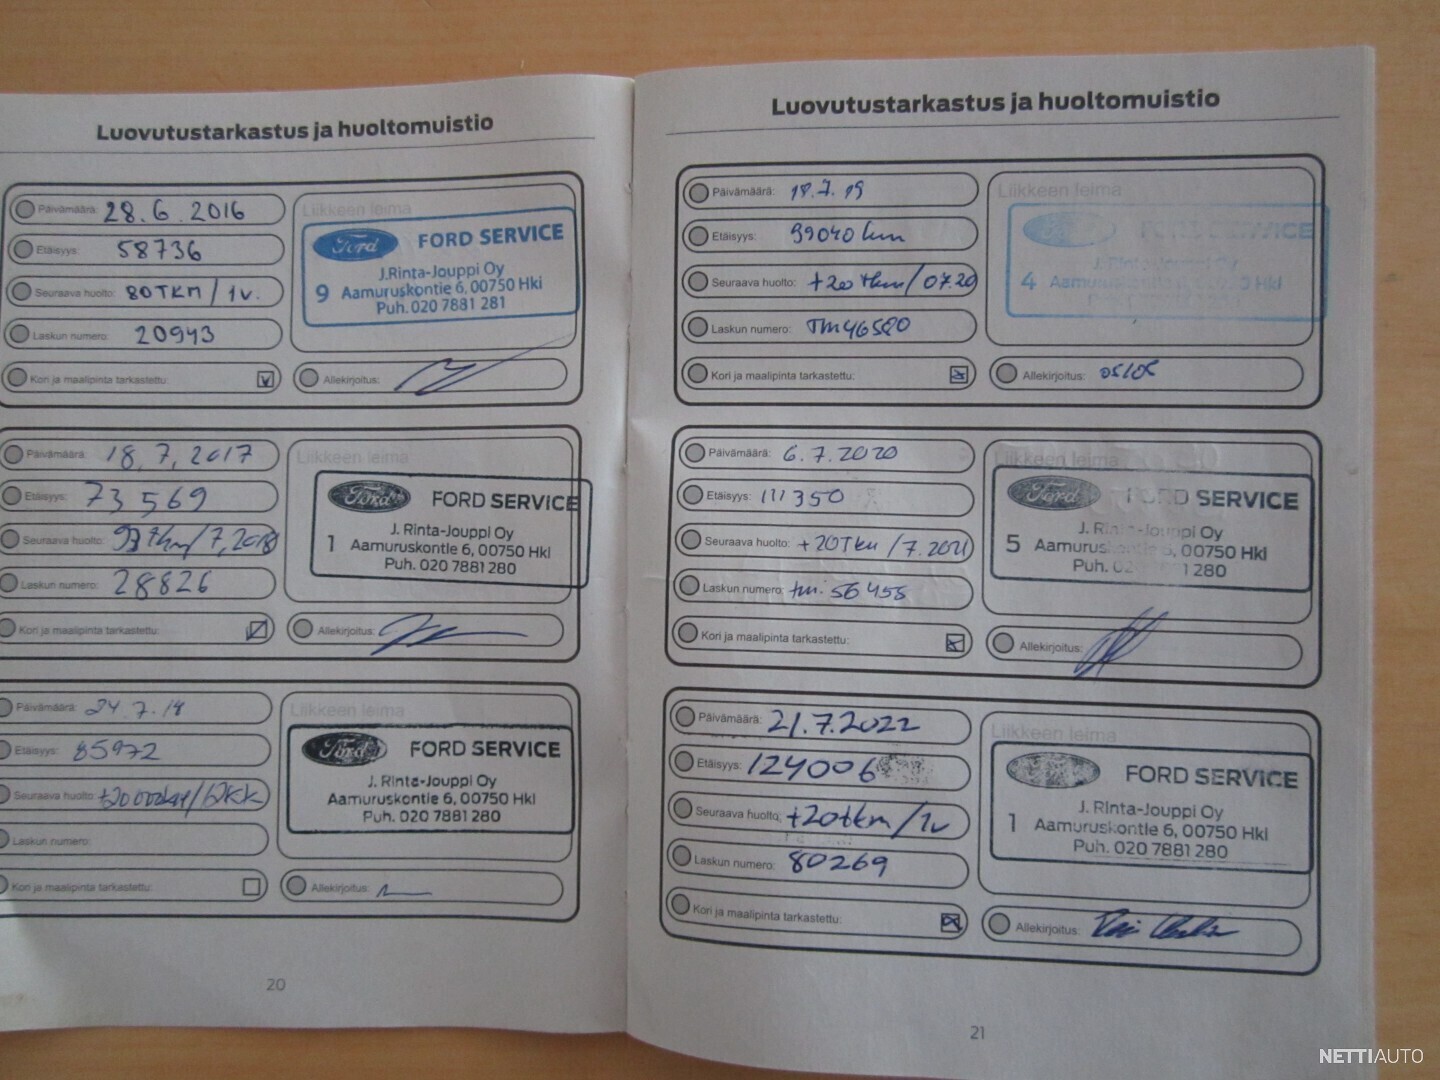 Luovutustarkastus ja huoltomuistio
Päivämäärä: 28.6.2016
Etäisyys: 58736
Seuraava huolto: 80TKM / 1v.
Laskun numero: 20943
Kori ja maalipinta tarkastettu:
Liikkeen leima
Ford FORD SERVICE
J.Rinta-Jouppi Oy
9 Aamuruskontie 6, 00750 Hki
Puh. 020 7881 281
Allekirjoitus:
Päivämäärä: 18.7.2017
Etäisyys: 73569
Seuraava huolto: 93tkm/7.2018
Laskun numero: 28826
Kori ja maalipinta tarkastettu:
Liikkeen leima
Ford FORD SERVICE
J. Rinta-Jouppi Oy
1 Aamuruskontie 6, 00750 Hki
Puh. 020 7881 280
Allekirjoitus:
Päivämäärä: 24.7.18
Etäisyys: 85972
Seuraava huolto: +20 000km/12KK
Laskun numero:
Kori ja maalipinta tarkastettu:
Liikkeen leima
Ford FORD SERVICE
J. Rinta-Jouppi Oy
Aamuruskontie 6, 00750 Hki
Puh. 020 7881 280
Allekirjoitus:
20
Luovutustarkastus ja huoltomuistio
Päivämäärä: 18.7.19
Etäisyys: 99040 km
Seuraava huolto: +20 tkm/07.20
Laskun numero: TM46580
Kori ja maalipinta tarkastettu:
Liikkeen leima
Ford FORD SERVICE
J. Rinta-Jouppi Oy
4 Aamuruskontie 6, 00750 Hki
Allekirjoitus:
Päivämäärä: 6.7.2020
Etäisyys: 111350
Seuraava huolto: +20Tkm /7.2021
Laskun numero: tm. 56455
Kori ja maalipinta tarkastettu:
Liikkeen leima
Ford FORD SERVICE
J. Rinta-Jouppi Oy
5 Aamuruskontie 6, 00750 Hki
Puh. 020 7881 280
Allekirjoitus:
Päivämäärä: 21.7.2022
Etäisyys: 124006
Seuraava huolto: +20tkm/1v
Laskun numero: 80269
Kori ja maalipinta tarkastettu:
Liikkeen leima
FORD SERVICE
J. Rinta-Jouppi Oy
1 Aamuruskontie 6, 00750 Hki
Puh. 020 7881 280
Allekirjoitus:
21
NETTIAUTO